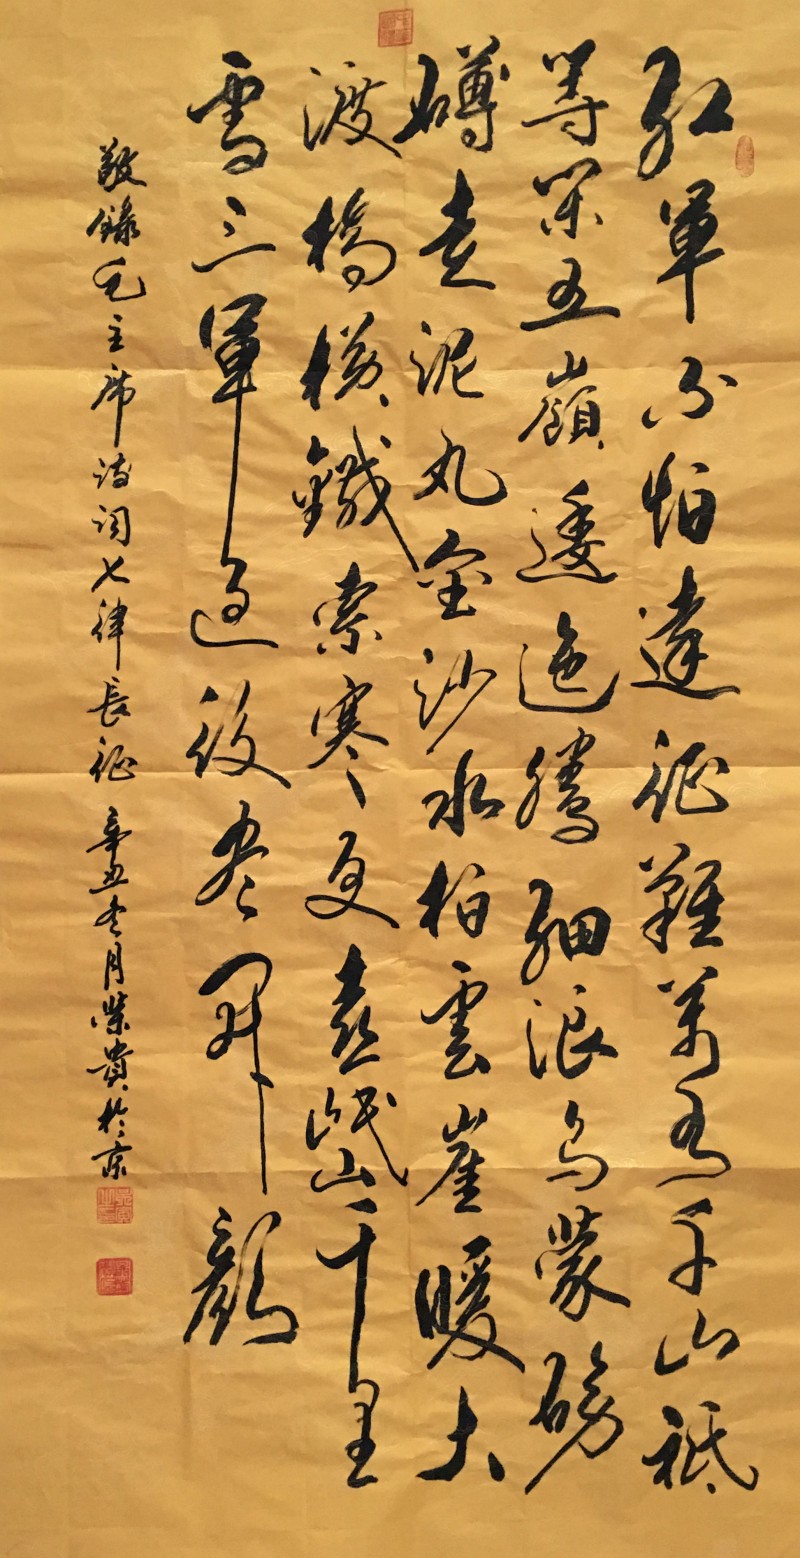 紅軍不怕遠征難萬水千山祗
等閑五嶺逶迤騰細浪烏蒙磅
礴走泥丸金沙水拍雲崖暖大
渡橋橫鐵索寒更喜岷山千里
雪三軍過後尽開顏
敬錄毛主席詩詞七律長征 辛丑冬月貴於京